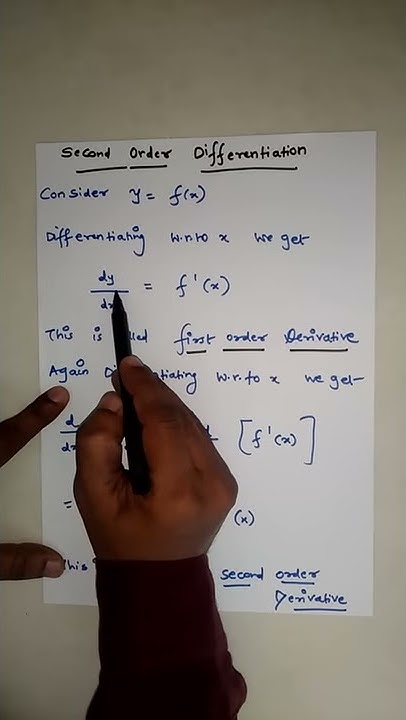 Second Order Differentiation
Consider y = f(x)
Differentiating w.r.to x we get
dy
= f'(x)
This is called first order Derivative
Again w.r.to x we get
d
[f'(x)]
=
(x)
This
second order
Derivative